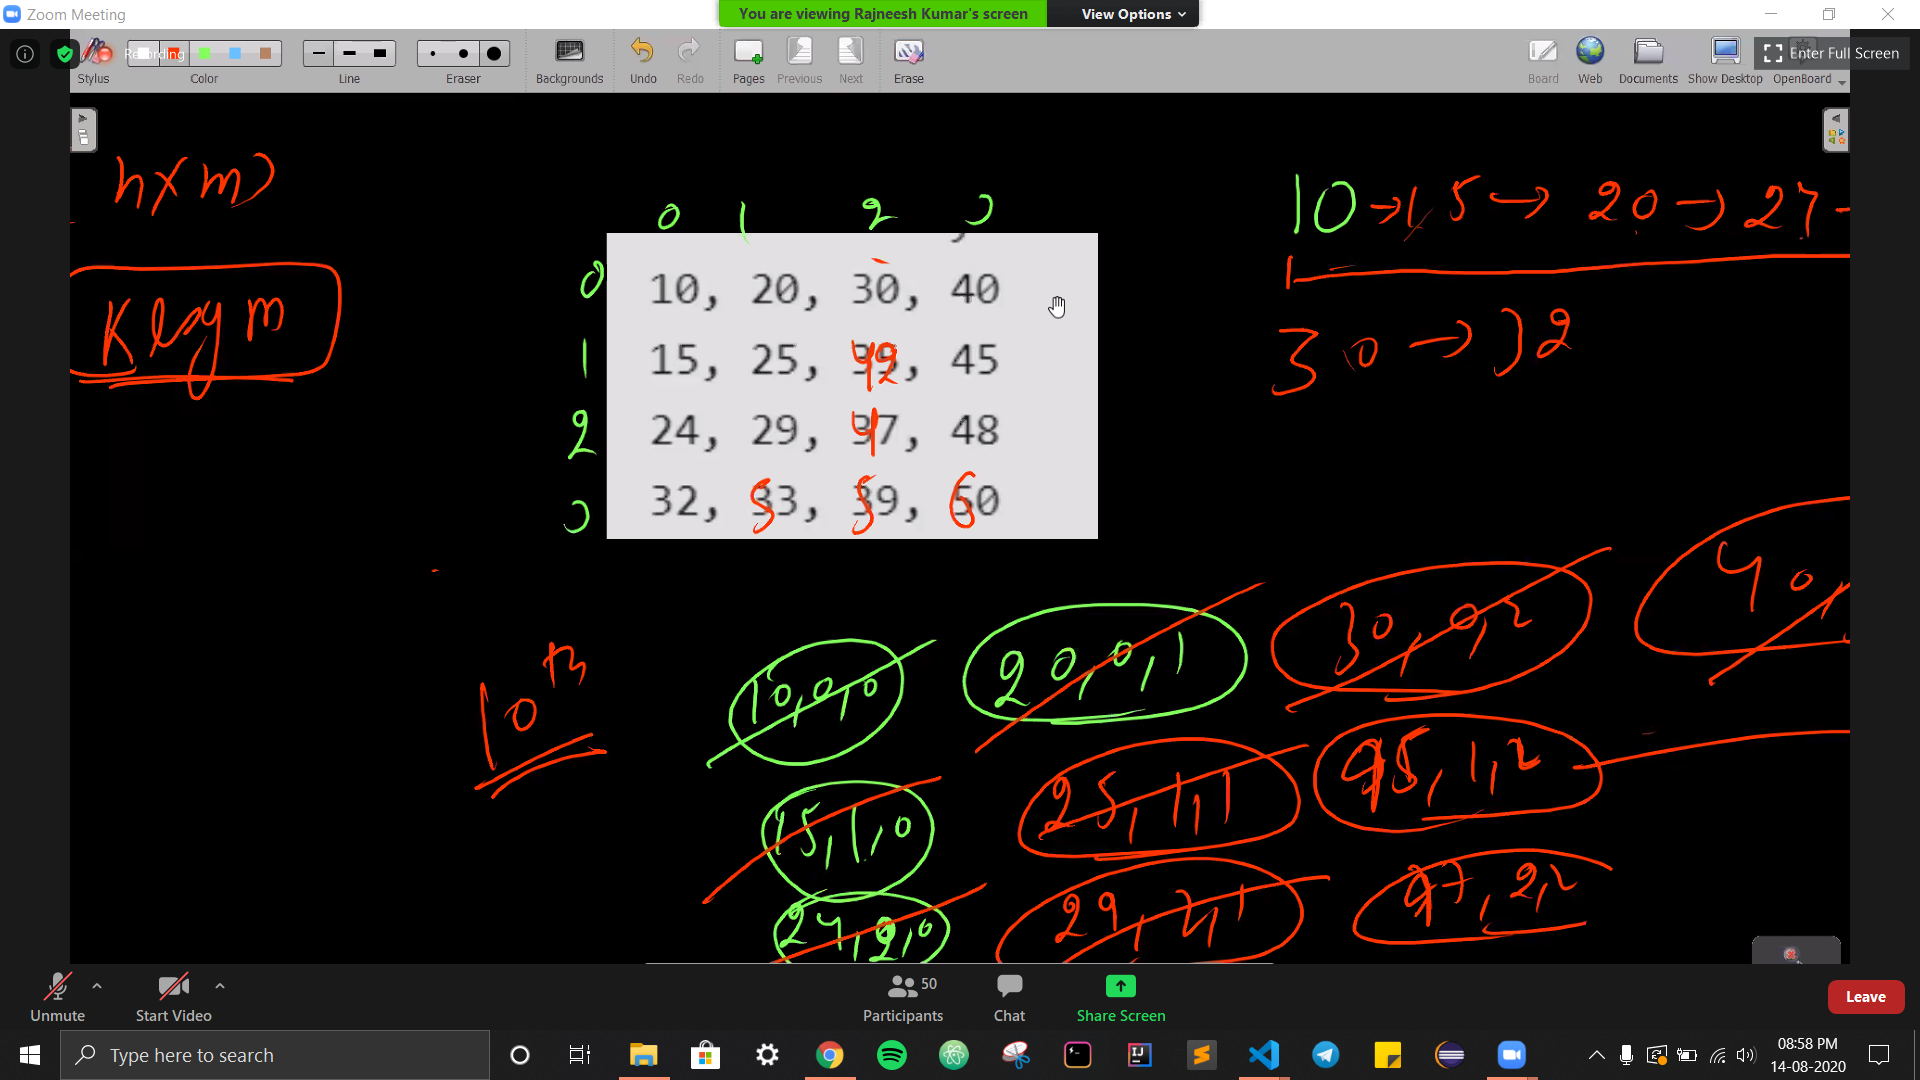 Zoom Meeting
You are viewing Rajneesh Kumar's screen
View Options
Recording
Stylus Color Line Eraser Backgrounds Undo Redo Pages Previous Next Erase Board Web Documents Show Desktop OpenBoard
Enter Full Screen
n x m)
K log m
0 1 2 3
0 10, 20, 30, 40
1 15, 25, 42, 45
2 24, 29, 47, 48
3 32, 53, 59, 60
10 → 15 → 20 → 24
30 → 32
10th
10,0,0 20,0,1 30,0,2 40,
15,1,0 25,1,1 45,1,2
24,2,0 29,2,1 47,2,2
Unmute
Start Video
50
Participants
Chat
Share Screen
Leave
Type here to search
08:58 PM
14-08-2020